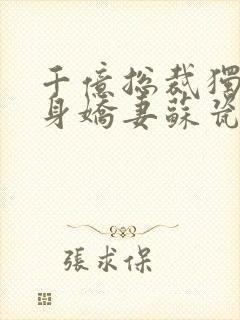 千億捴裁獨
身嬌妻蘇瓷
張求保